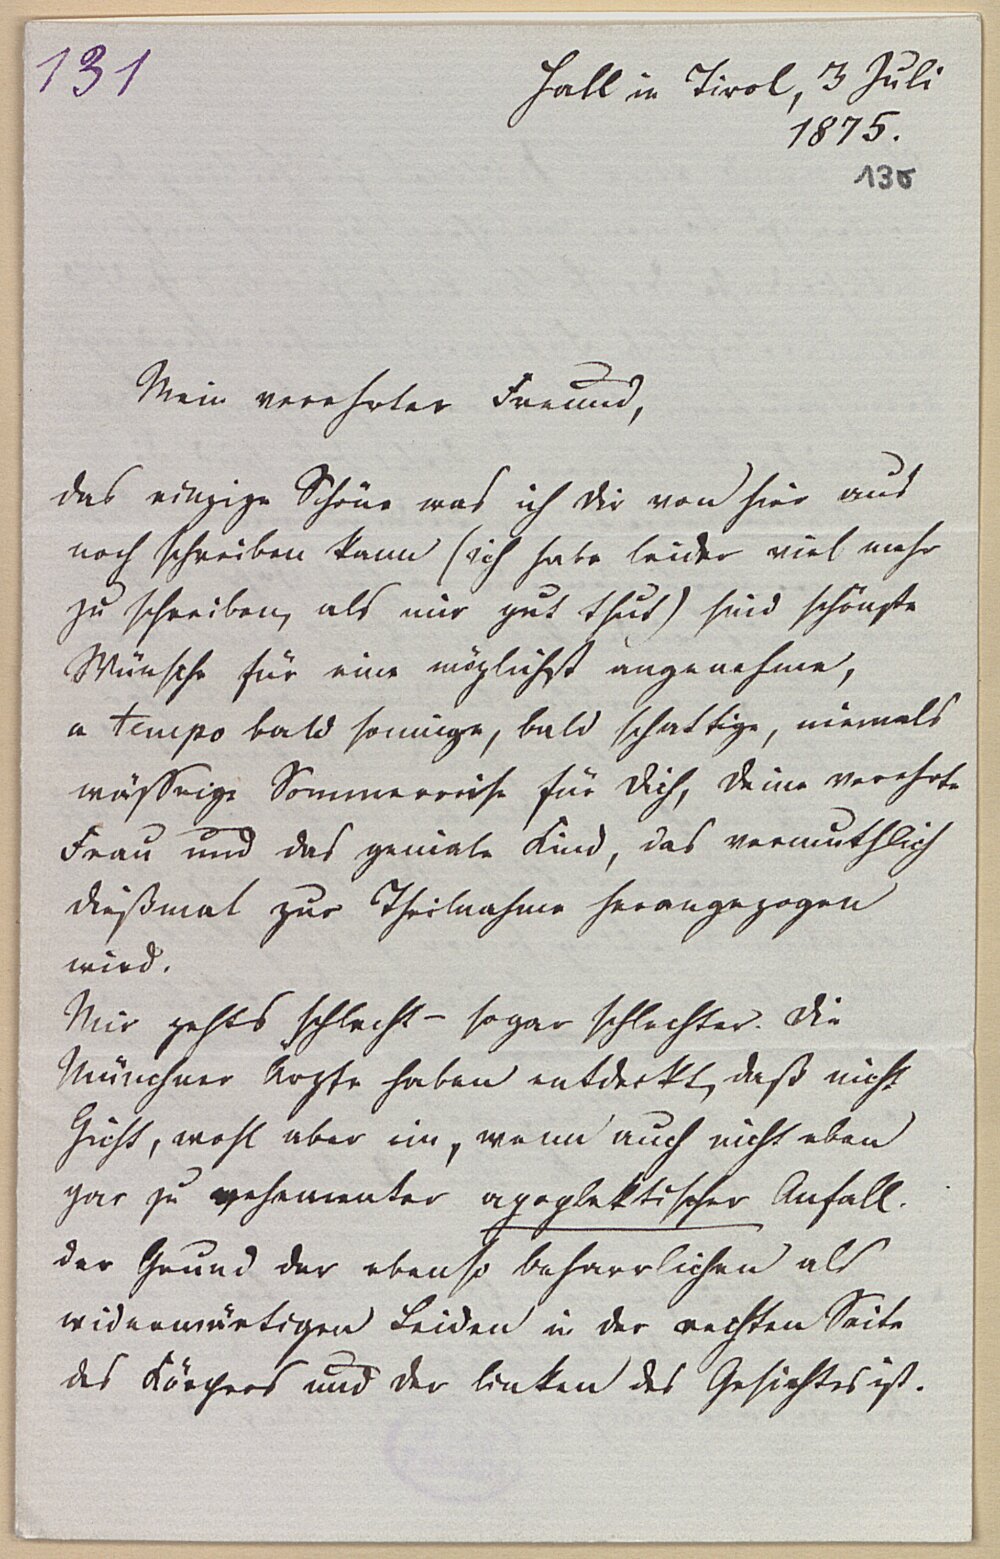 131
Hall in Tirol, 3 Juli
1875.
130
Mein verehrter Freund,
das einzige Schöne was ich dir von hier aus
noch schreiben kann (ich habe leider viel mehr
zu schreiben, als mir gut thut) sind schönste
Wünsche für eine möglichst angenehme,
a tempo bald sonnige, bald schattige, niemals
wässrige Sommerreise für Dich, Deine verehrte
Frau und das geniale Kind, das vermuthlich
dießmal zur Theilnahme herangezogen
wird.
Mir gehts schlecht – sogar schlechter. Die
Münchner Ärzte haben entdeckt, daß nicht
Gicht, wohl aber ein, wenn auch nicht eben
gar zu vehementer apoplektischer Anfall
der Grund der ebenso beharrlichen als
widerwärtigen Leiden in der rechten Seite
des Körpers und der linken des Gesichtes ist.